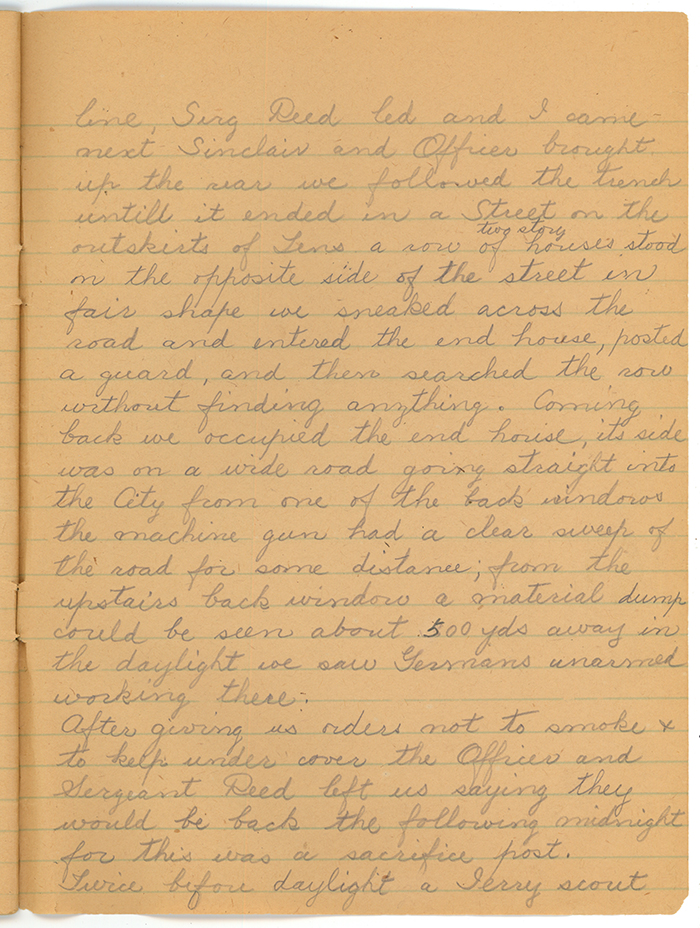 line, Sirg Reed led and I came
next Sinclair and Officer brought
up the rear we followed the trench
untill it ended in a Street on the
outskirts of Lens a row of two story houses stood
on the opposite side of the street in
fair shape we sneaked across the
road and entered the end house, posted
a guard, and then searched the row
without finding anything. Coming
back we occupied the end house, its side
was on a wide road going straight into
the City from one of the back windows
the machine gun had a clear sweep of
the road for some distance; from the
upstairs back window a material dump
could be seen about 500 yds away in
the daylight we saw Germans unarmed
working there.
After giving us orders not to smoke &
to keep under cover the Officer and
Sergeant Reed left us saying they
would be back the following midnight
for this was a sacrifice post.
Twice before daylight a Jerry scout